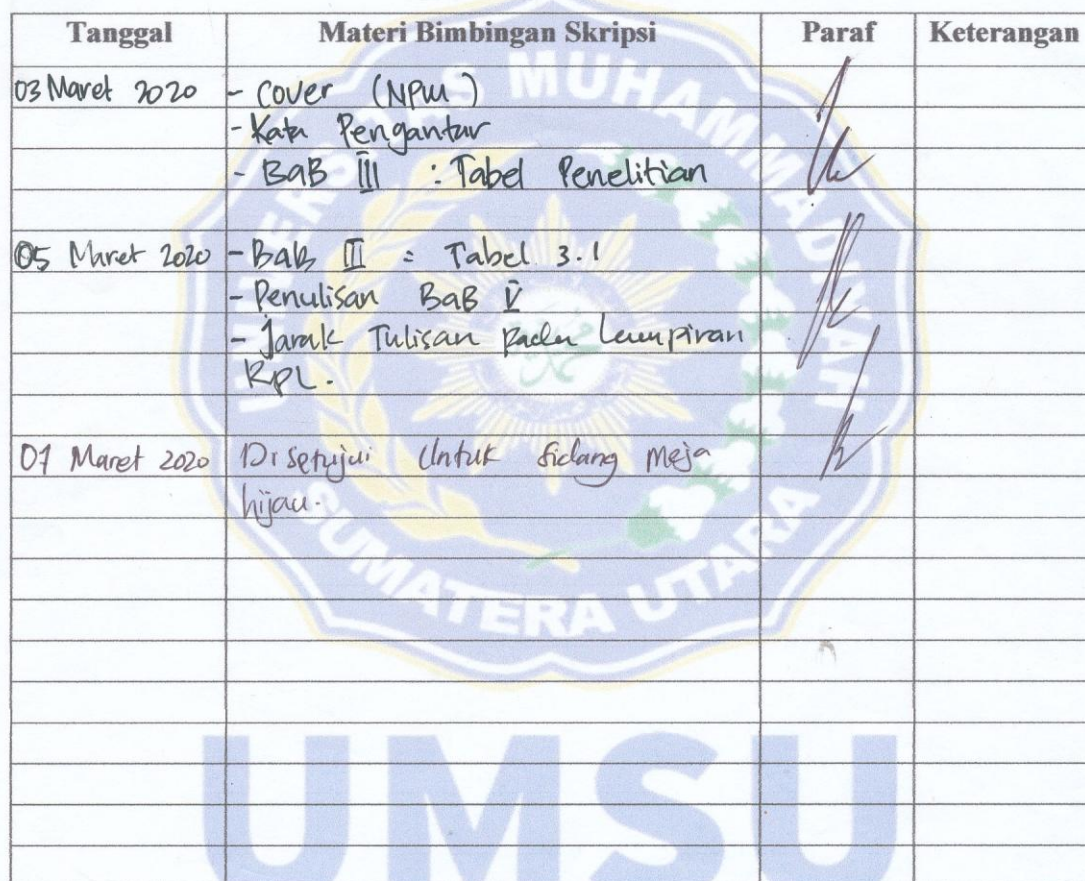 Tanggal Materi Bimbingan Skripsi Paraf Keterangan
03 Maret 2020 - Cover (NPM)
- Kata Pengantar
- BaB III : Tabel Penelitian
05 Maret 2020 - Bab III : Tabel 3.1
- Penulisan BaB V
- Jarak Tulisan pada Lampiran
RPL.
07 Maret 2020 Disetujui Untuk Sidang Meja
hijau.
UNIVERSITAS MUHAMMADIYAH
SUMATERA UTARA
UMSU